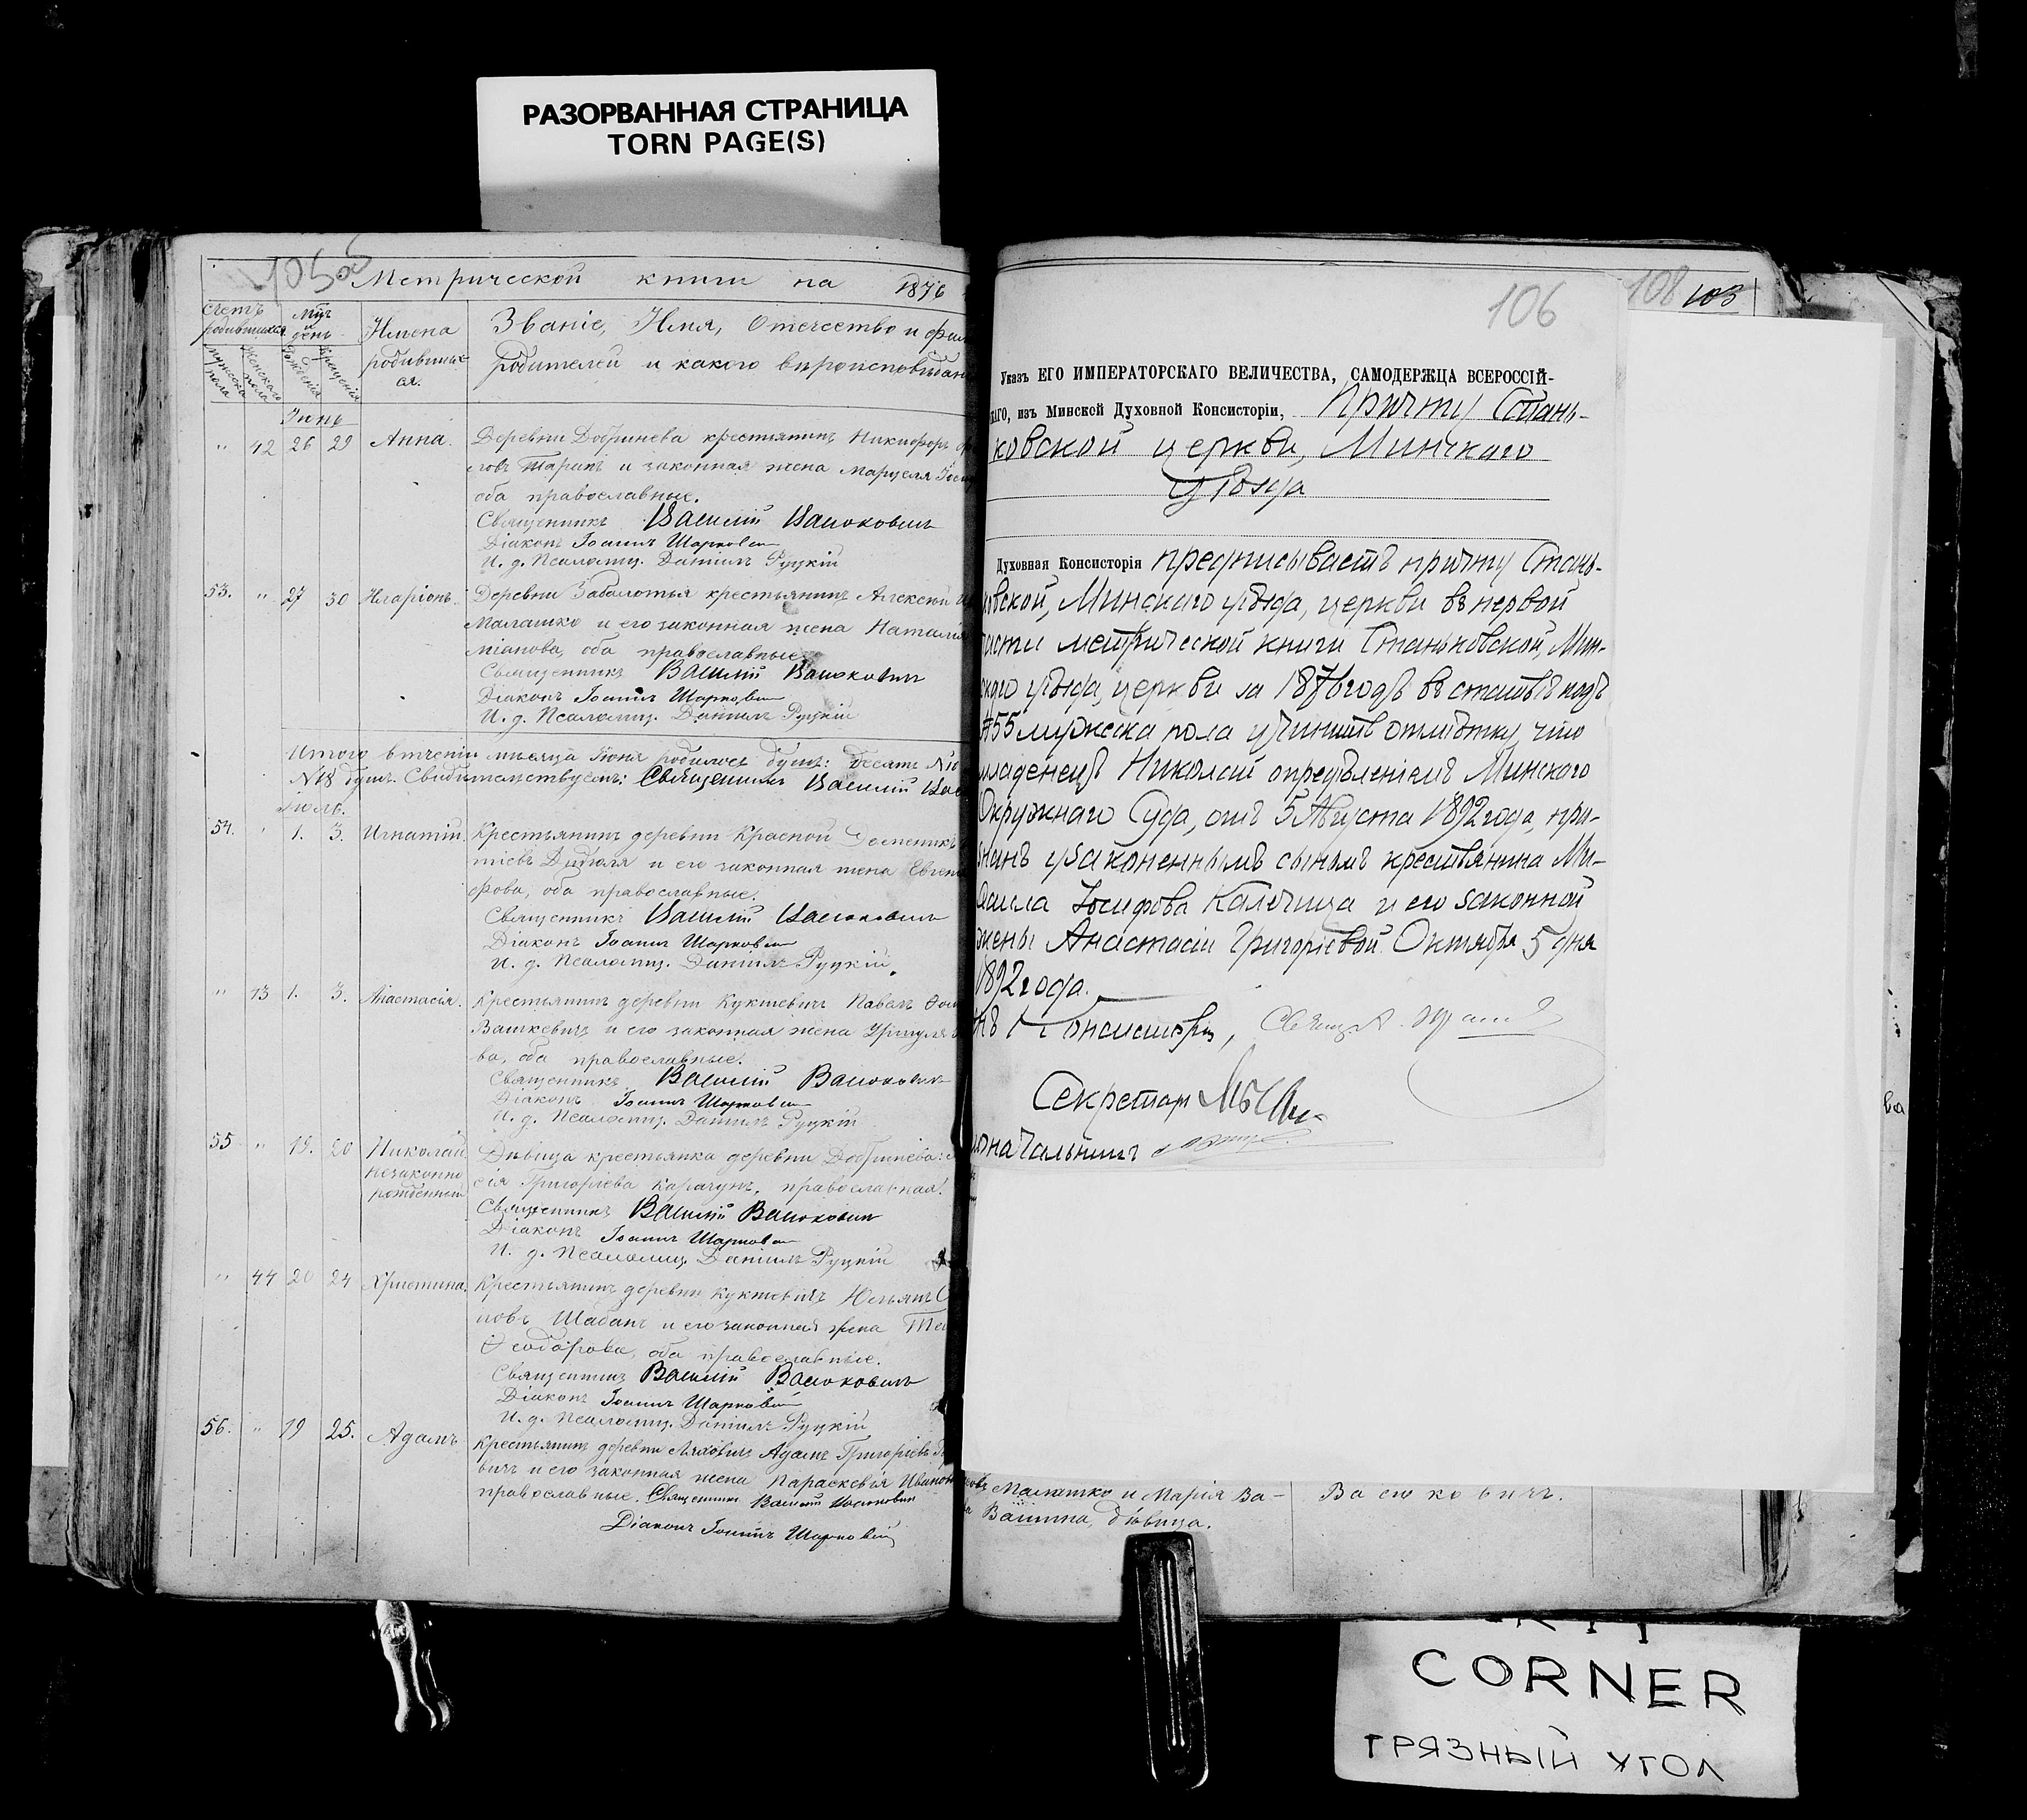 РАЗОРВАННАЯ СТРАНИЦА
TORN PAGE(S)
105об
Метрической книги на 1876
Счетъ родившихся
Мужеска пола
Женскаго пола
Мцъ и день
Рожденія
Крещенія
Имена родившихся.
Званіе, Имя, Отечество и
родителей и какого вѣроисповѣдан
Іюнь
" 42 26 29 Анна. Деревни Добринева крестьянинъ Никифоръ
и законная жена Марцеля
оба православные.
Священникъ Василій Васюковичъ
Діаконъ Іоаннъ
И. д. Псаломщ. Даніилъ Руцкій
53. " 27 30 Иларіонъ. Деревни Заболотья крестьянинъ Алексѣй
Малашко и его законная жена Наталія
міанова, оба православные.
Священникъ Василій Васюковичъ
Діаконъ Іоаннъ
И. д. Псаломщ. Даніилъ Руцкій
Итого втеченіи мѣсяца Іюня родилось душъ: десять №10
№18 душъ. Свидѣтельствуемъ: Священникъ Василій Вас
Іюль.
54. " 1. 3. Игнатій. Крестьянинъ деревни Красной
тіевъ Дидюля и его законная жена Евген
фова, оба православные.
Священникъ Василій Васюковичъ
Діаконъ Іоаннъ
И. д. Псаломщ. Даніилъ Руцкій.
" 43 1. 3. Анастасія. Крестьянинъ деревни Куктевичъ Павелъ
Вашкевичъ и его законная жена Уршуля
ва, оба православные.
Священникъ Василій Васюковичъ
Діаконъ Іоаннъ
И. д. Псаломщ. Даніилъ Руцкій
55 " 15. 20 Николай незаконно рожденный Дѣвица крестьянка деревни Добринева:
сія Григоріева Карачунъ, православная.
Священникъ Василій Васюковичъ
Діаконъ Іоаннъ
И. д. Псаломщ. Даніилъ Руцкій
" 44 20 24 Христина. Крестьянинъ деревни Куктевичъ
новъ Шабанъ и его законная жена
Ѳеодорова, оба православные.
Священникъ Василій Васюковичъ
Діаконъ Іоаннъ
И. д. Псаломщ. Даніилъ Руцкій
56. " 19 25. Адамъ Крестьянинъ деревни Ляховичъ Адамъ Григорьевъ
вичъ и его законная жена Параскевія Иванов
православные. Священникъ Василій Васюковичъ
Діаконъ Іоаннъ
106
108 103
Указъ ЕГО ИМПЕРАТОРСКАГО ВЕЛИЧЕСТВА, САМОДЕРЖЦА ВСЕРОССІЙ-
КАГО, изъ Минской Духовной Консисторіи, Причту Стань-
ковской церкви, Минскаго
уѣзда
Духовная Консисторія предписываетъ причту Стань-
ковской, Минскаго уѣзда, церкви въ первой
части метрической книги Станьковской, Мин-
скаго уѣзда, церкви за 1876 годъ въ статьѣ подъ
№55 мужеска пола учинить отмѣтку, что
младенецъ Николай опредѣленіемъ Минскаго
Окружнаго Суда, отъ 5 Августа 1892 года, при-
знанъ узаконеннымъ сыномъ крестьянина Ми-
хаила Іосифова Калечица и его законной
жены Анастасіи Григоріевой. Октября 5 дня
1892 года.
нъ Консисторіи, Свящ. А.
Секретарь
оначальникъ
ва
Малашко и Марія Ва-
Васюковичъ.
дѣвица.
CORNER
ГРЯЗНЫЙ УГОЛ